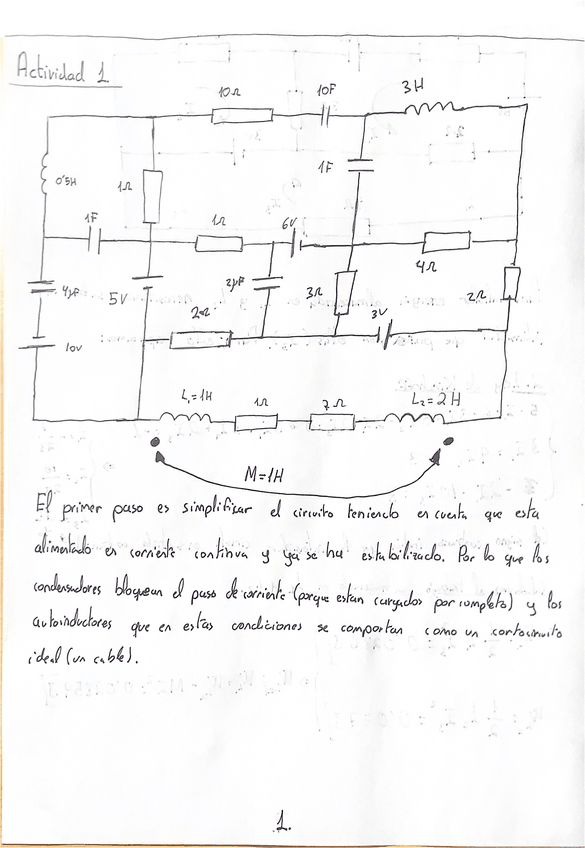 Actividad 1
10Ω
10F
3H
1F
0'5H
1Ω
1F
1Ω
6V
4Ω
4µF
5V
2µF
3Ω
2Ω
2Ω
3V
10V
L₁=1H
1Ω
7Ω
L₂=2H
M=1H
El primer paso es simplificar el circuito teniendo en cuenta que esta
alimentado en corriente continua y ya se ha estabilizado. Por lo que los
condensadores bloquean el paso de corriente (porque estan cargados por completo) y los
autoinductores que en estas condiciones se comportan como un cortocircuito
ideal (un cable).
1.